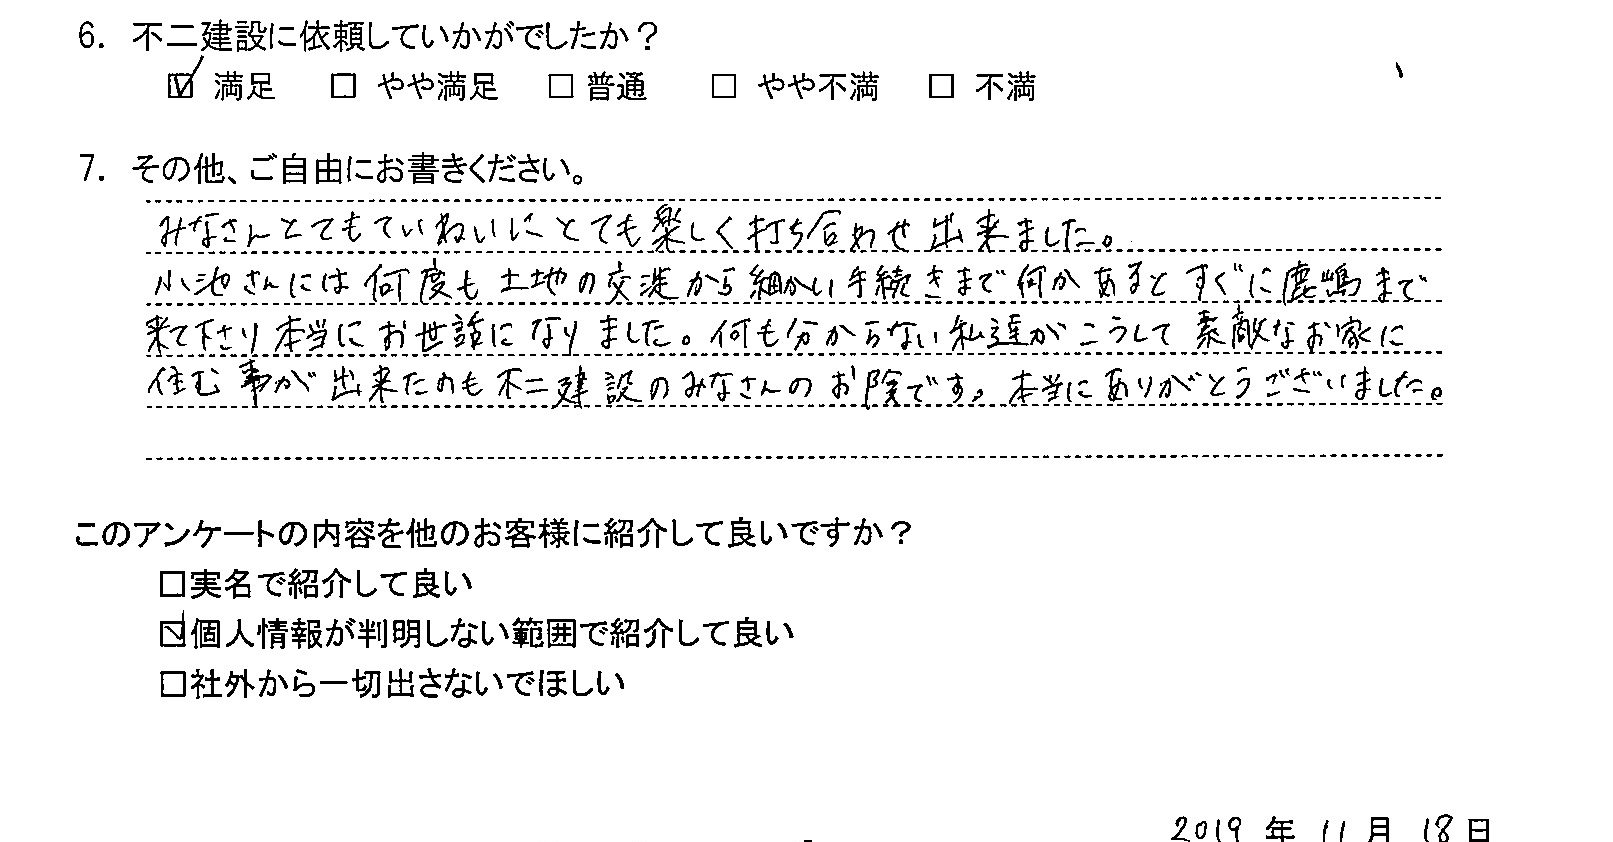 6. 不二建設に依頼していかがでしたか？
☑ 満足 □ やや満足 □ 普通 □ やや不満 □ 不満
7. その他、ご自由にお書きください。
みなさんとてもていねいにとても楽しく打ち合わせ出来ました。
小池さんには何度も土地の交渉から細かい手続きまで何かあるとすぐに鹿嶋まで
来て下さり本当にお世話になりました。何も分からない私達がこうして素敵なお家に
住む事が出来たのも不二建設のみなさんのお陰です。本当にありがとうございました。
このアンケートの内容を他のお客様に紹介して良いですか？
□実名で紹介して良い
☑個人情報が判明しない範囲で紹介して良い
□社外から一切出さないでほしい
2019 年 11 月 18 日